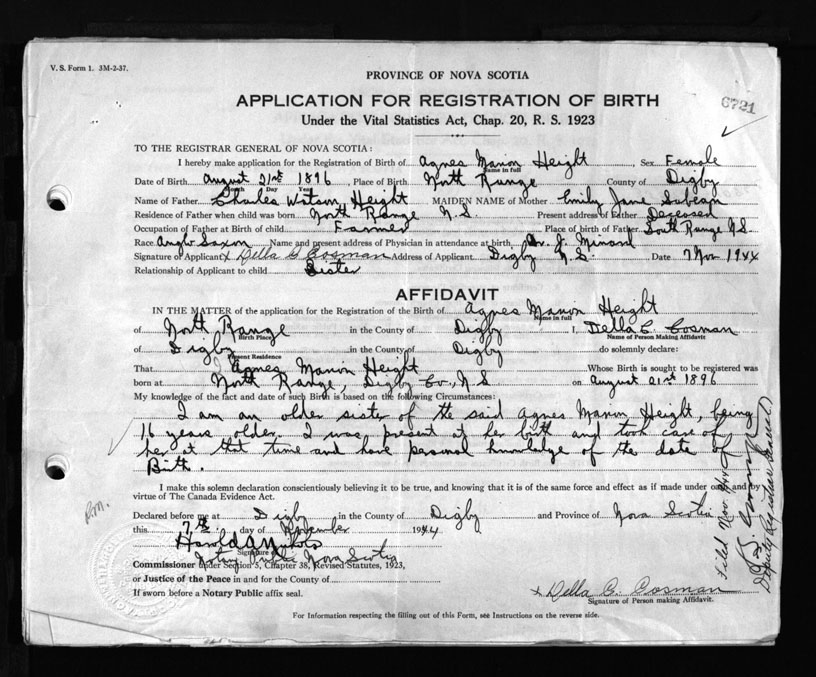 V. S. Form 1. 3M-2-37.
PROVINCE OF NOVA SCOTIA
APPLICATION FOR REGISTRATION OF BIRTH
6721
Under the Vital Statistics Act, Chap. 20, R. S. 1923
TO THE REGISTRAR GENERAL OF NOVA SCOTIA:
I hereby make application for the Registration of Birth of Agnes Manon Height, Sex Female
Name in full
Date of Birth August 21st 1896, Place of Birth North Range County of Digby
Month Day Year
Name of Father Charles Watson Height MAIDEN NAME of Mother Emily Jane Sabean
Residence of Father when child was born North Range N.S. Present address of Father Deceased
Occupation of Father at Birth of child Farmer Place of birth of Father South Range N.S.
Race Anglo Saxon Name and present address of Physician in attendance at birth, Dr. J. Minard
Signature of Applicant x Della C Cosman Address of Applicant Digby N.S. Date 7 Nov 1944
Relationship of Applicant to child Sister
AFFIDAVIT
IN THE MATTER of the application for the Registration of the Birth of Agnes Manon Height
Name in full
of North Range in the County of Digby I, Della C. Cosman
Birth Place Name of Person Making Affidavit
of Digby in the County of Digby do solemnly declare:
Present Residence
That Agnes Manon Height Whose Birth is sought to be registered was
born at North Range, Digby Co., N.S on August 21st 1896
My knowledge of the fact and date of such Birth is based on the following Circumstances:
I am an older sister of the said Agnes Manon Height, being
16 years older. I was present at her birth and took care of
her at that time and have personal knowledge of the date of
Birth.
I make this solemn declaration conscientiously believing it to be true, and knowing that it is of the same force and effect as if made under oath and by
virtue of The Canada Evidence Act.
Declared before me at Digby in the County of Digby and Province of Nova Scotia
this 7th day of November 1944
Harold A
Signature of
Notary Public Nova Scotia
Commissioner under Section 5, Chapter 38, Revised Statutes, 1923,
or Justice of the Peace in and for the County of
If sworn before a Notary Public affix seal.
x Della C. Cosman
Signature of Person making Affidavit.
For Information respecting the filling out of this Form, see Instructions on the reverse side.
Filed Nov
Deputy Registrar General